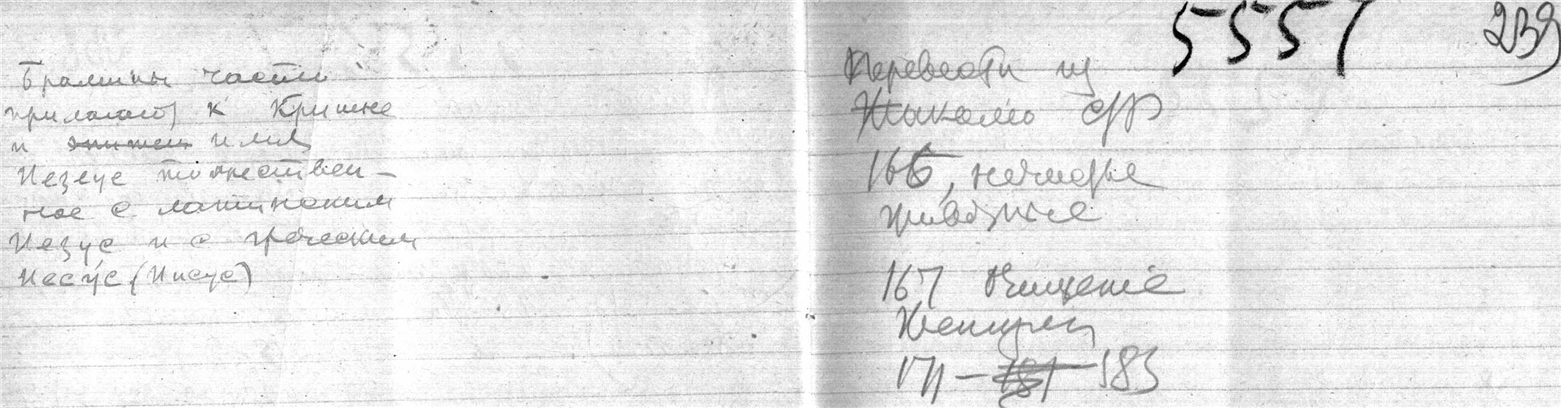 Брамины часто
прилагают к Кришне
и имя
Иезеус тожествен-
ное с латинским
Иезус и с греческим
Иесус (Иисус)
5557
239
Перевести из
Жаколио стр
166, нечистые
животные
167 Очищение
Женщины
171 – 181 – 183